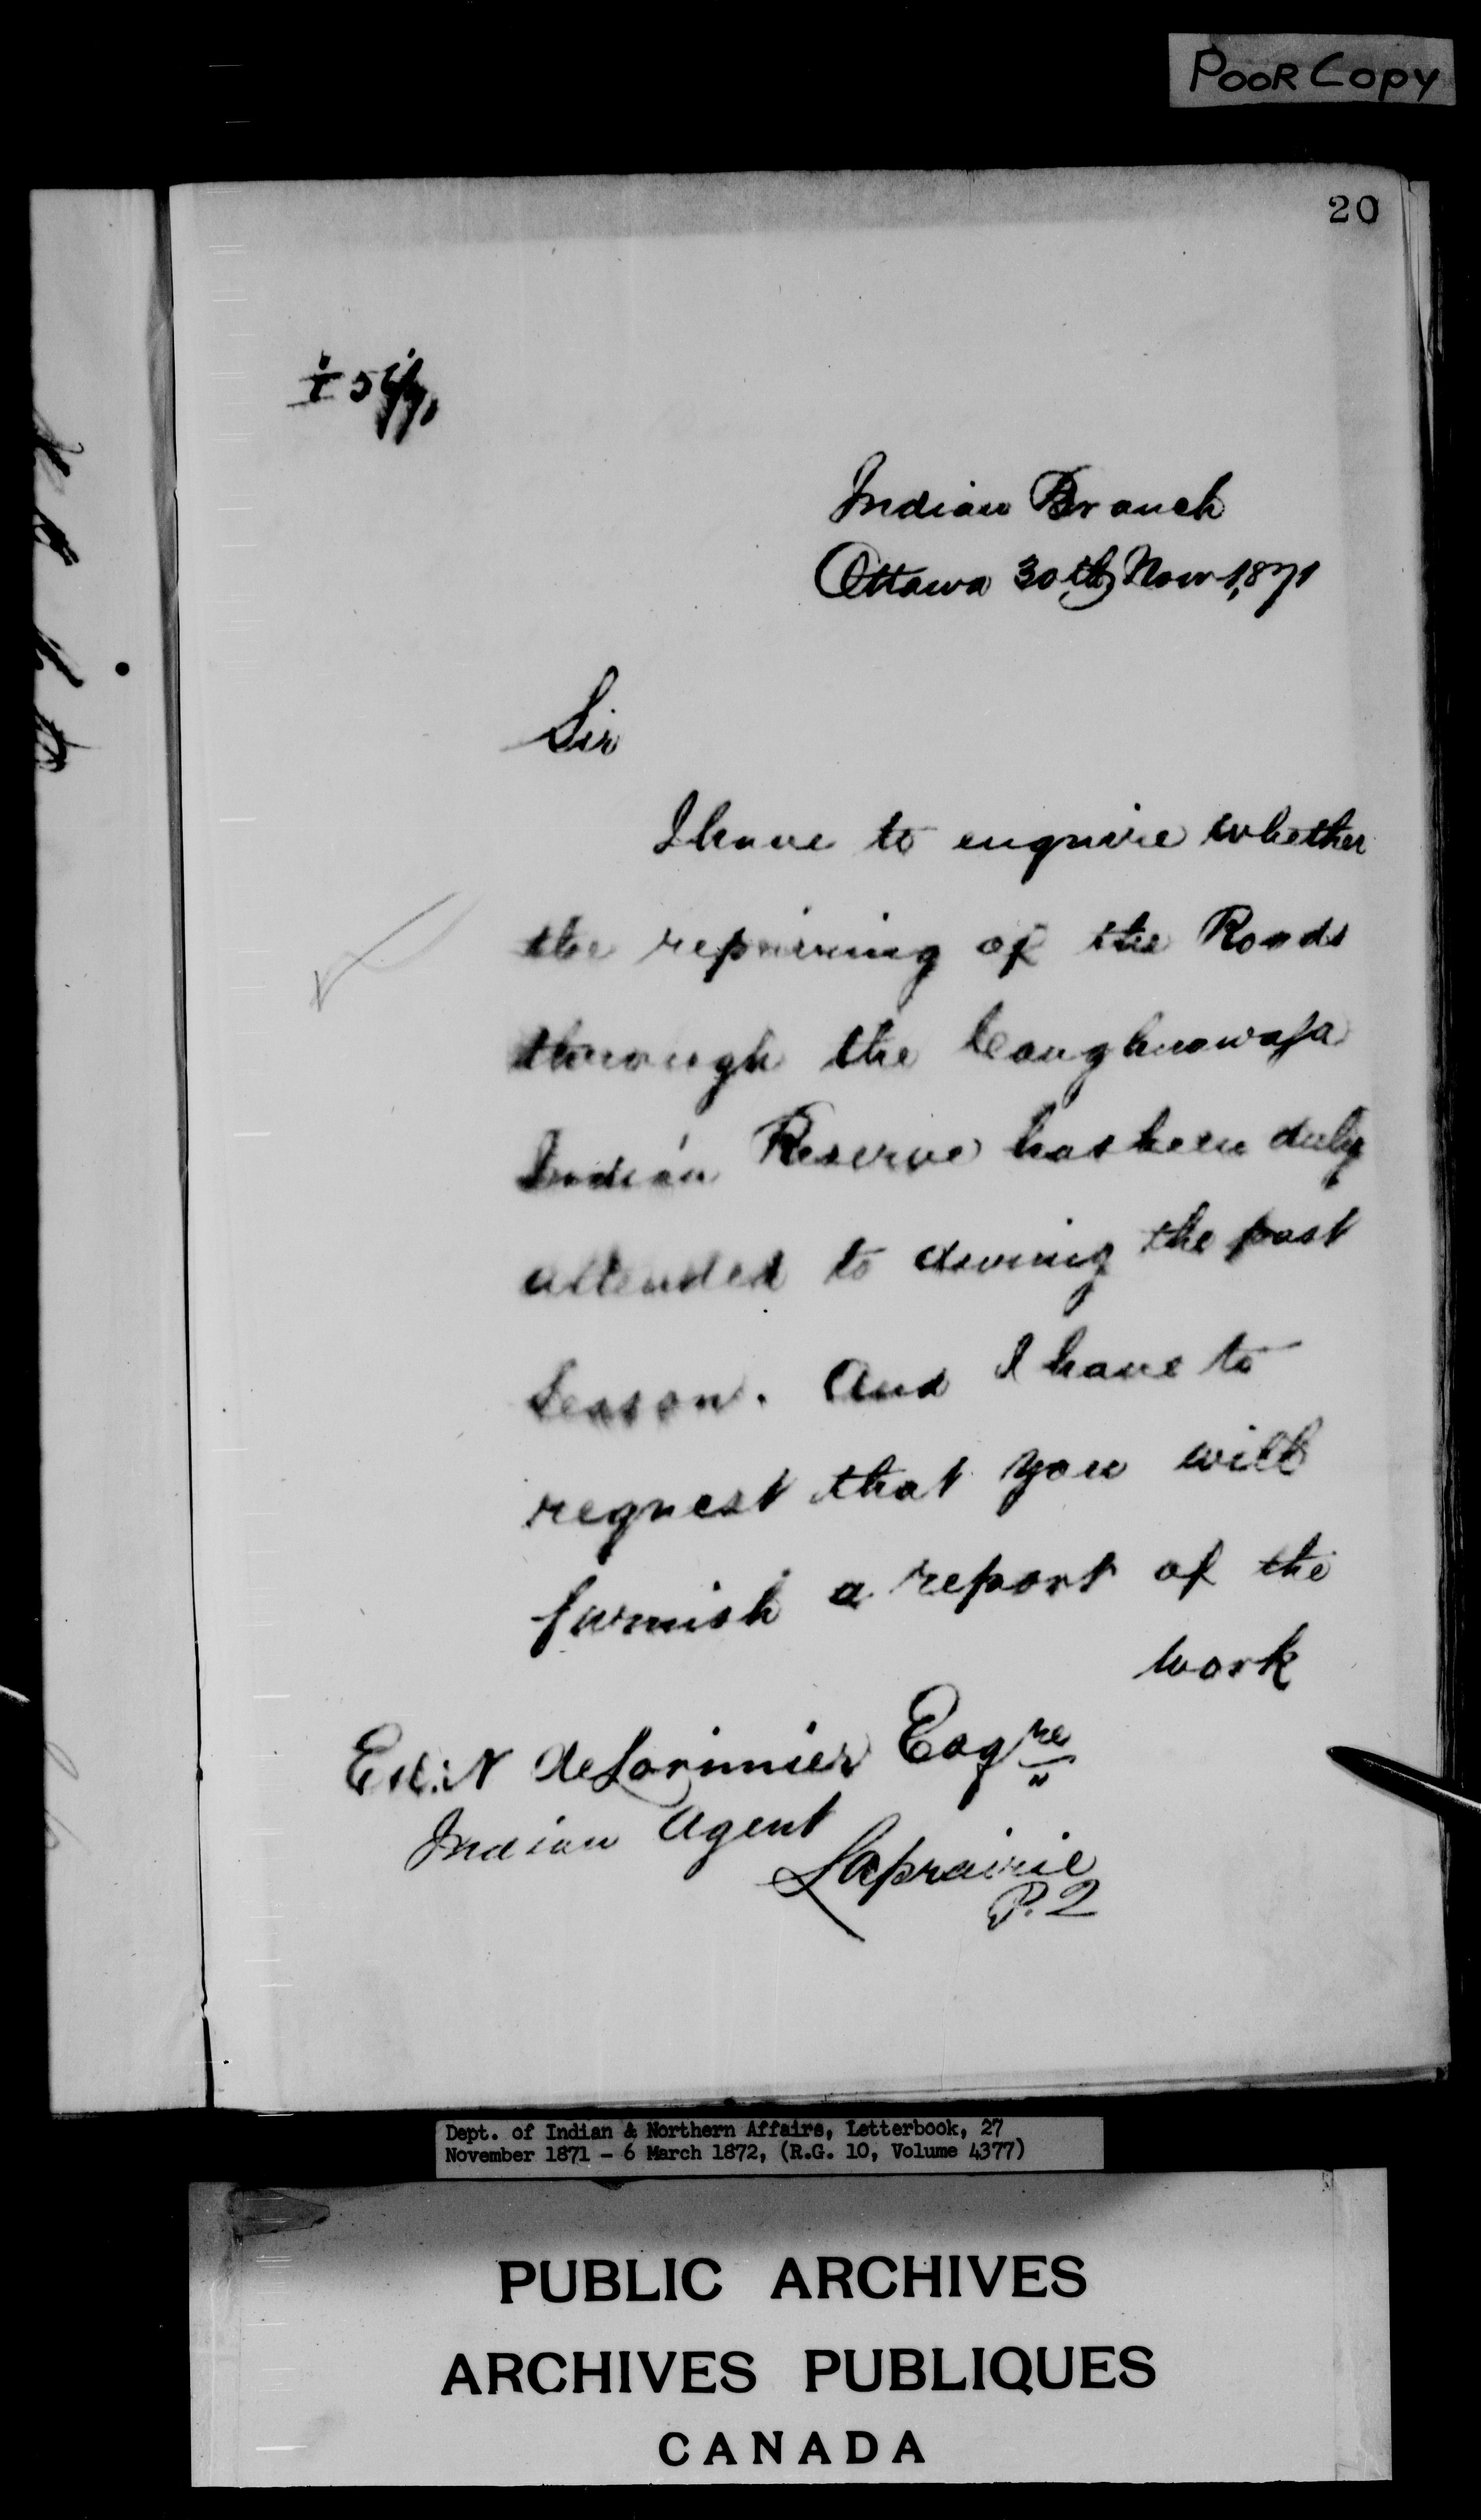 POOR COPY
20
Indian Branch
Ottawa 30th Novr 1,871
Sir
I have to enquire whether
the repairing of the Roads
through the Caughnawaga
Indian Reserve has been duly
attended to during the past
Season. And I have to
request that you will
furnish a report of the
work
Ed: N deLorimier Esqre
Indian Agent
Laprairie
P. Q
Dept. of Indian & Northern Affairs, Letterbook, 27
November 1871 - 6 March 1872, (R.G. 10, Volume 4377)
PUBLIC ARCHIVES
ARCHIVES PUBLIQUES
CANADA